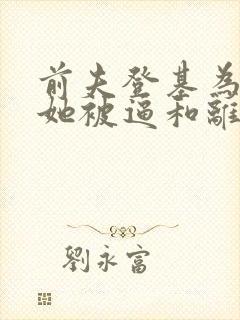 前夫登基為
她被逼和離
劉永富